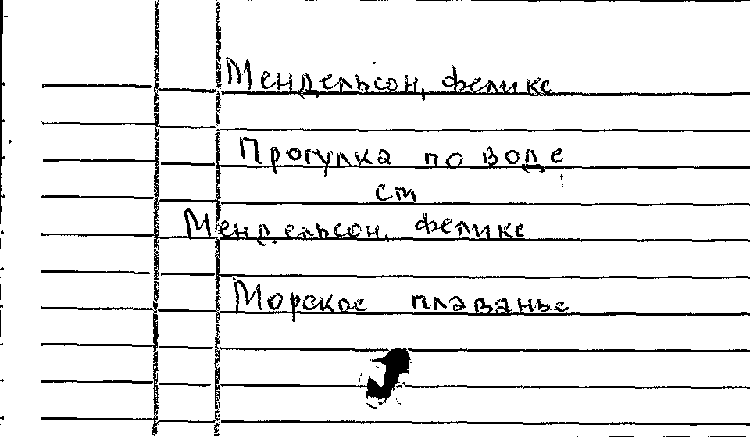 Мендельсон, феликс
Прогулка по воде
см
Мендельсон, феликс
Морское плаванье